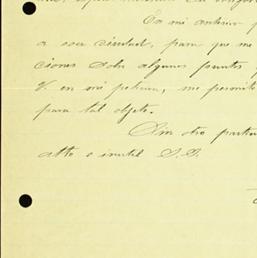 En mi anterior
a esa ciudad, para que me
ciones sobre algunos puntos
V. en mi peticion, me permito
para tal objeto.
Sin otro particu
atto e inutil S.S.